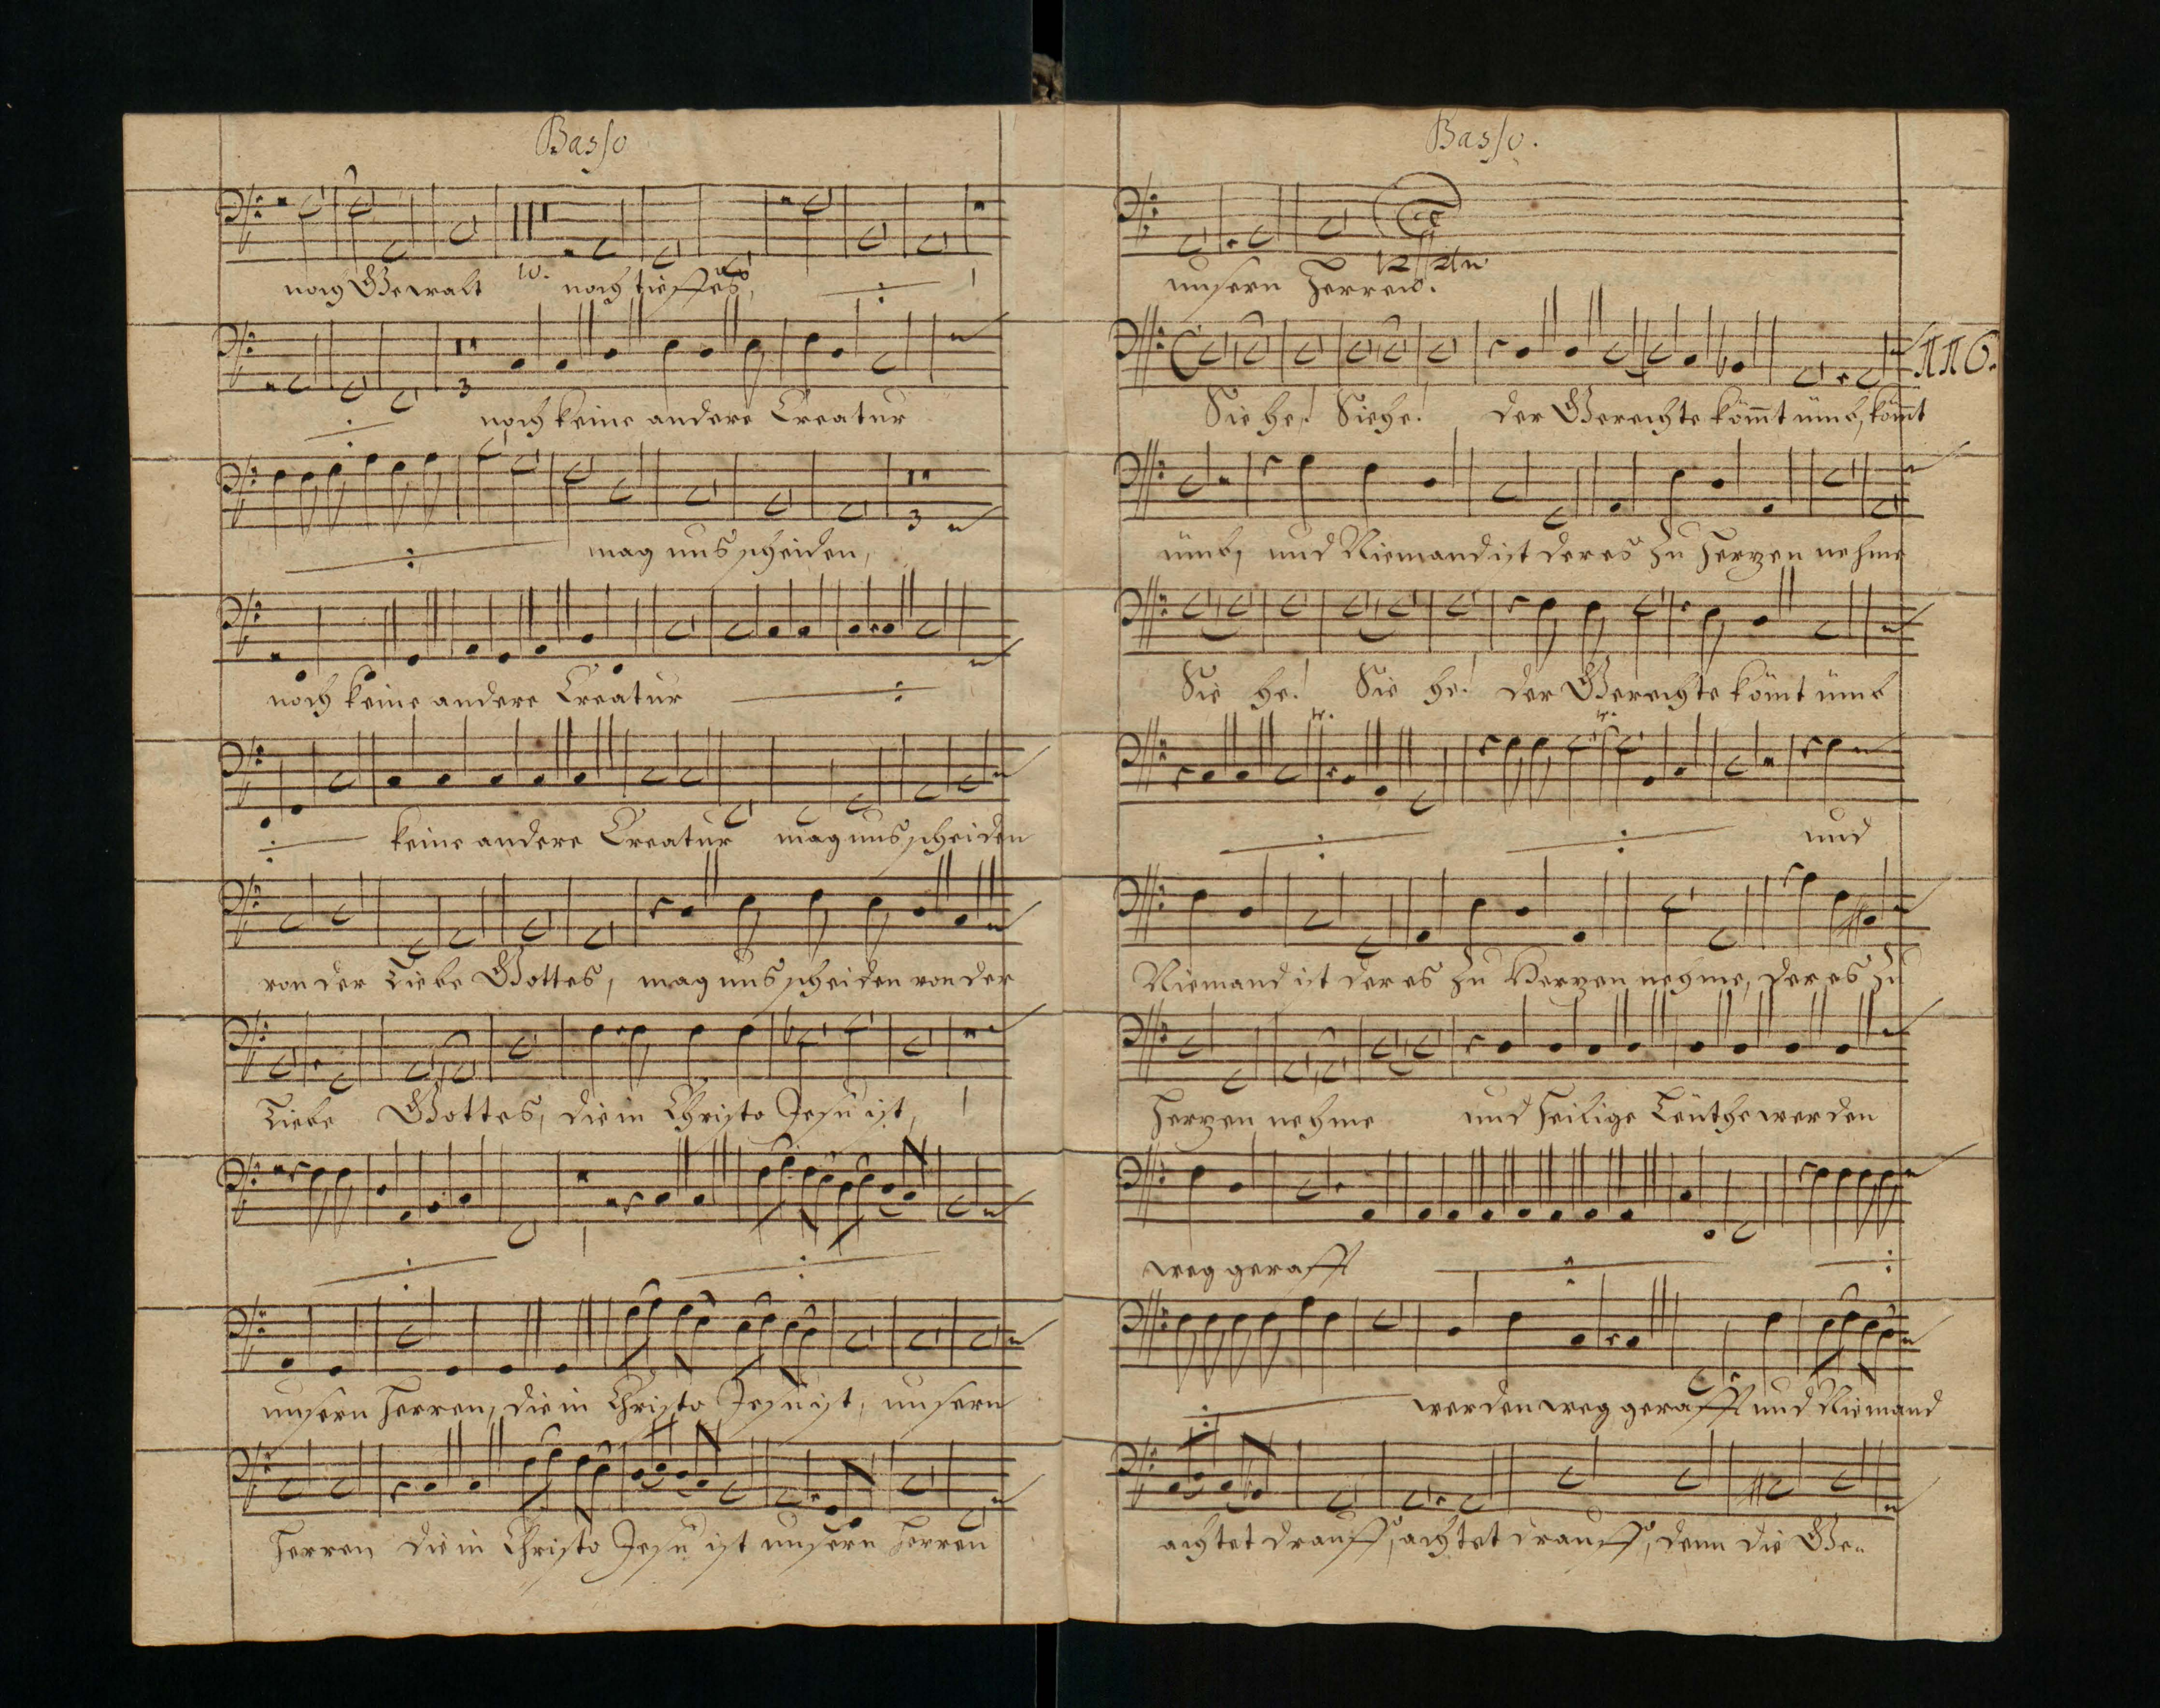 Basso
noch Gewalt 10. noch tieffes,
3
noch keine andere Creatur
mag uns scheiden, 3
noch keine andere Creatur
keine andere Creatur mag uns scheiden
von der Liebe Gottes, mag uns scheiden von der
Liebe Gottes, die in Christo Jesu ist,
unsern Herren, die in Christo Jesu ist, unsern
Herren die in Christo Jesu ist unsern Herren
Basso.
unsern Herren.
116.
Siehe! Siehe! der Gerechte köm̅t ümb, köm̅t
ümb, und Niemand ist der es zu Herzen nehme
Sie he! Sie he! der Gerechte kömt ümb
tr. tr.
und
Niemand ist der es zu Herzen nehme, der es zu
Herzen nehme und heilige Leüthe werden
weg gerafft
werden weg gerafft und Niemand
achtet drauff, achtet drauff, denn die Ge=